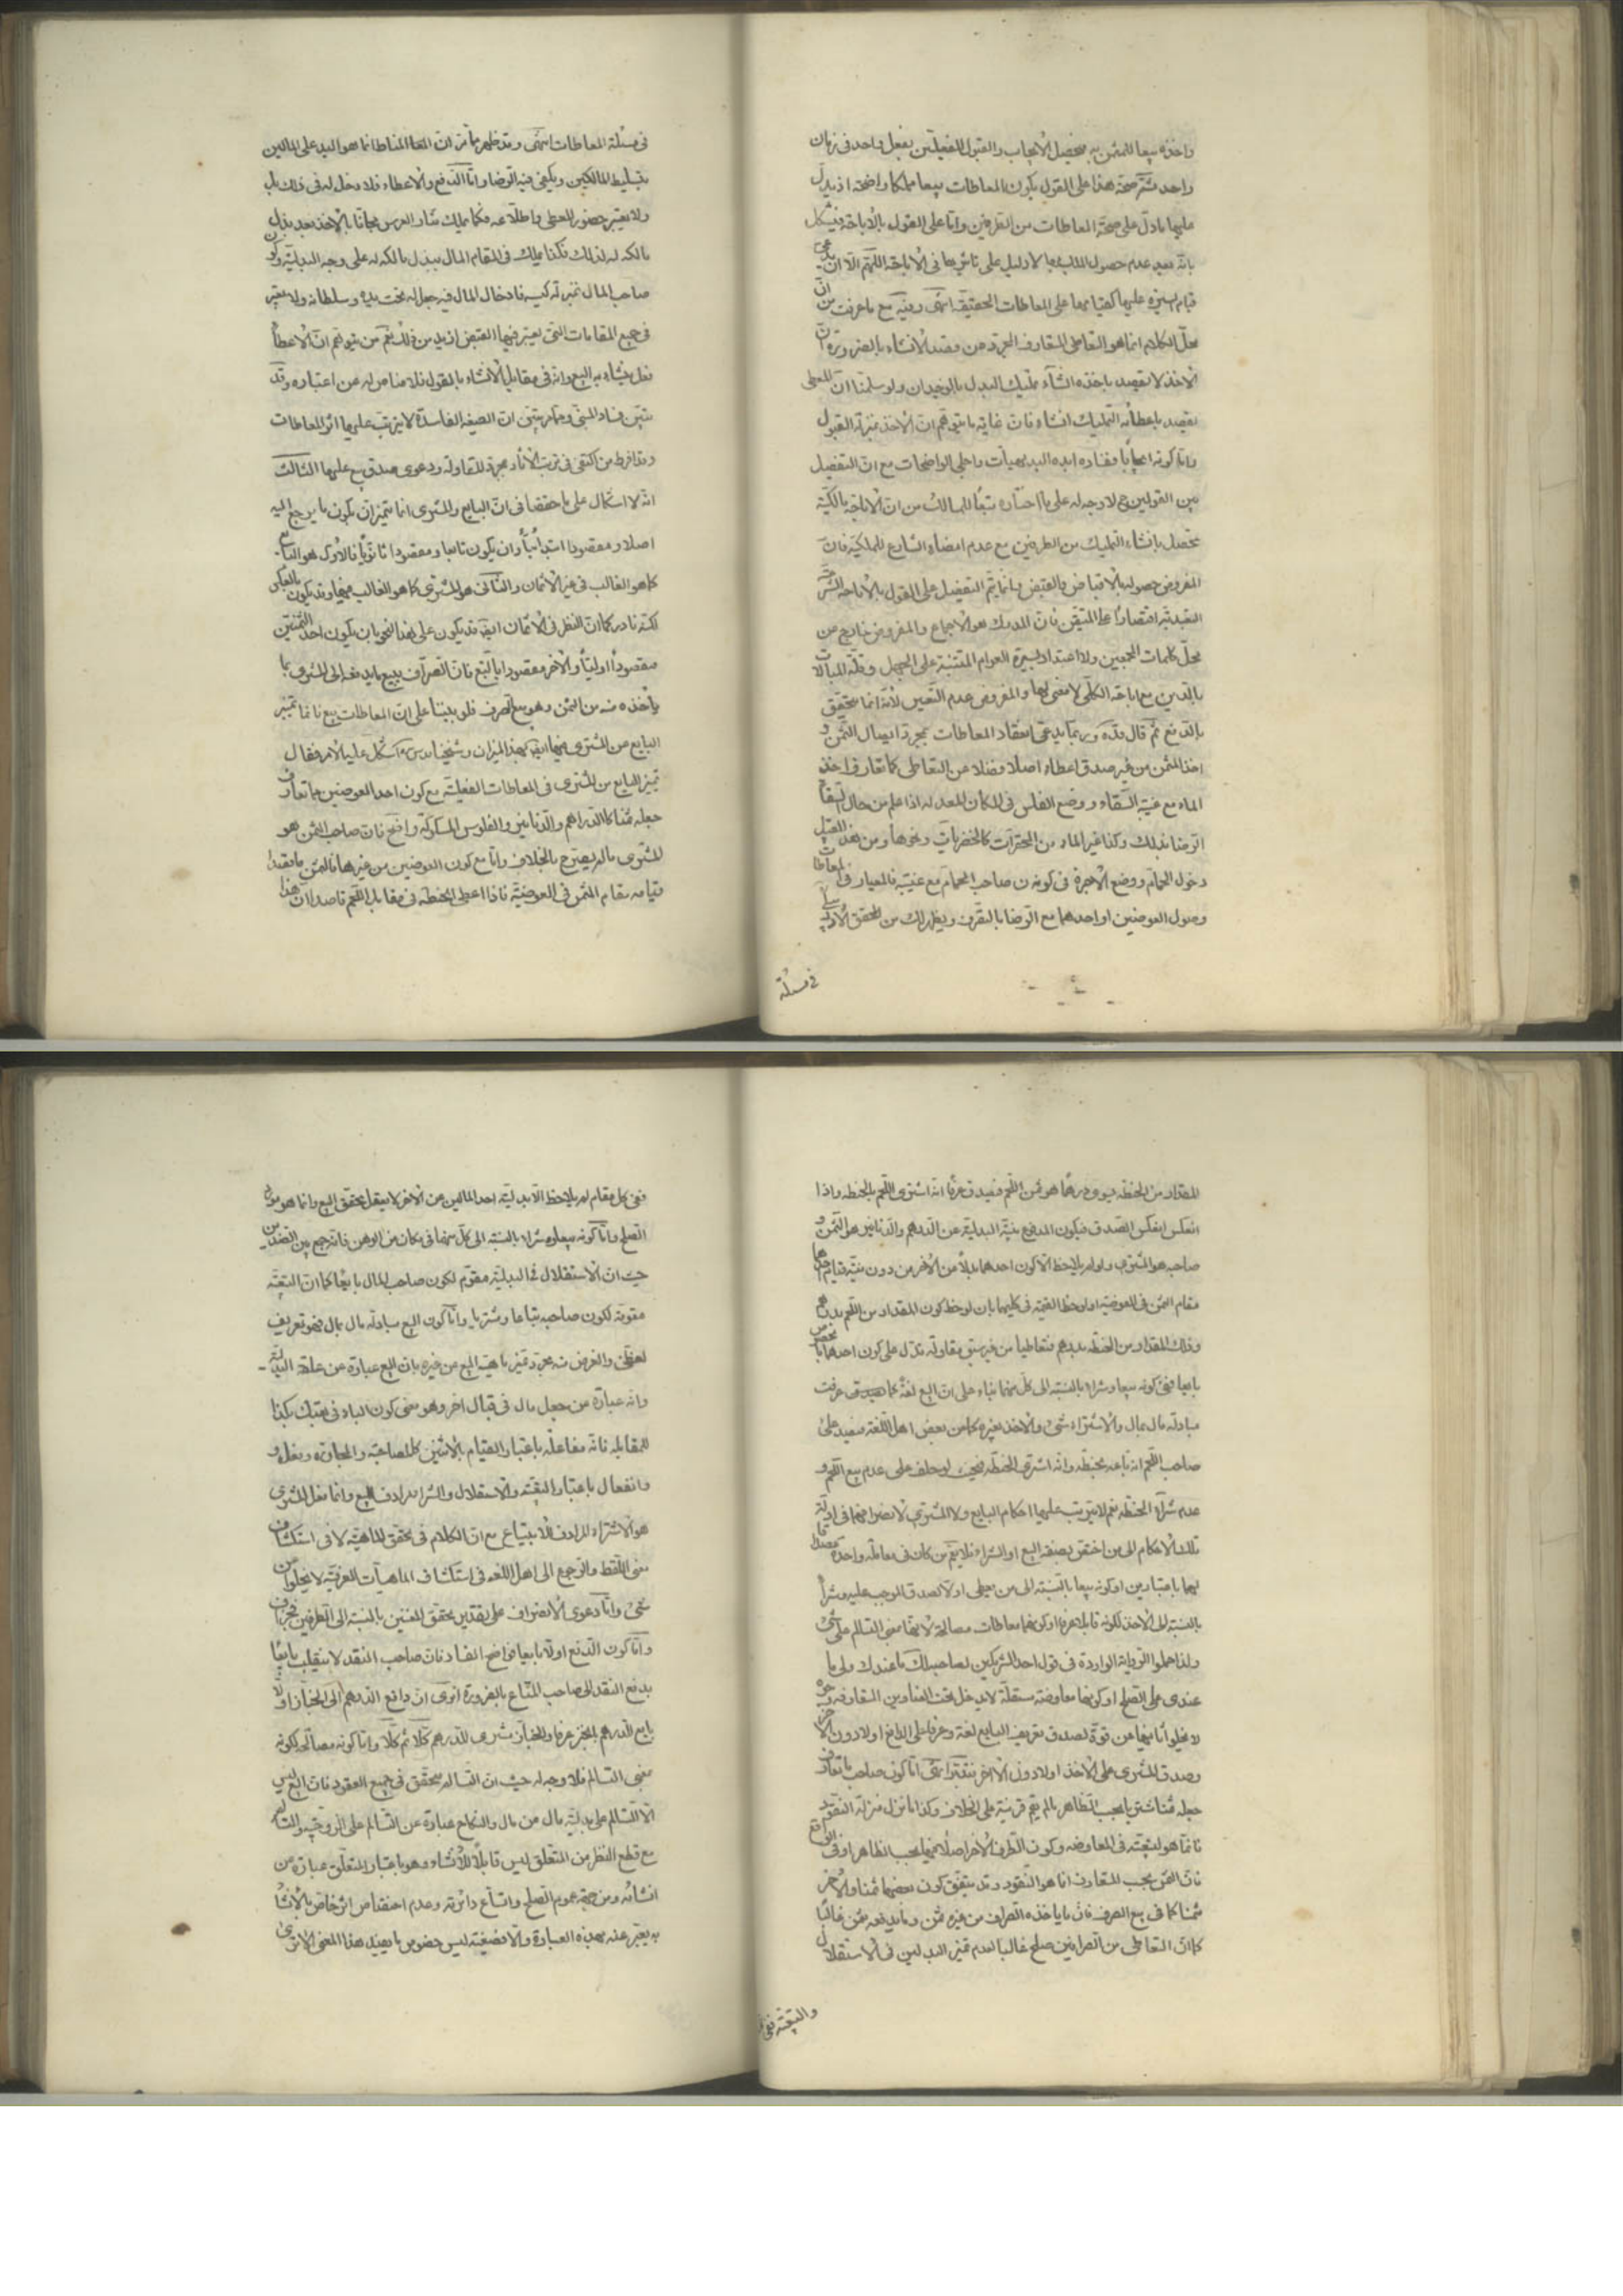 واخذه بيعا للمثمن به فيحصل الايجاب والقبول الفعليين بفعل واحد في زمان
واحد ثم صحة هذا على القول بكون المعاطات بيعا مملكا واضحة اذ يدل
عليها ما دل على صحة المعاطات من الطرفين واما على القول بالاباحة فيشكل
بانه بعد عدم حصول الملك بها لا دليل على تاثيرها في الاباحة اللهم الا ان يدعى
قيام السيرة عليها كقيامها على المعاطات الحقيقية انتهى وفيه مع ما عرفت من ان
محل الكلام انما هو التعاطي المتعارف المجرد عن قصد الانشاء بالضرورة ان
الاخذ لا يقصد باخذه انشاء تمليك البدل بالوجدان ولو سلمنا ان المعطى
يقصد باعطائه التمليك انشاء فان غاية ما يتوهم ان الاخذ بمنزلة القبول
واما كونه ايجابا ففساده ابده البديهيات واجلى الواضحات مع ان التفصيل
بين القولين ح لا وجه له على ما اختاره تبعا للمسالك من ان الاباحة مالكية
تحصل بانشاء التمليك من الطرفين مع عدم امضاء الشارع للملكية فان
المفروض حصوله بالاقباض والقبض وانما يتم التفصيل على القول بالاباحة الشرعية
التعبدية اقتصارا على المتيقن فان المدرك هو الاجماع والمفروض خارج عن
محل كلمات المجمعين ولا اعتداد بسيرة العوام المبتنية على الجهل وقلة المبالات
بالدين مع اباحة الكلي لا معنى لها والمفروض عدم التعيين لانه انما يتحقق
بالدفع ثم قال قده وربما يدعى انعقاد المعاطات بمجرد ايصال الثمن و
اخذ المثمن من غير صدق اعطاء اصلا فضلا عن التعاطي كما تعارف اخذ
الماء مع غيبة السقاء ووضع الفلس في المكان المعد له اذا علم من حال السقاء
الرضا بذلك وكذا غير الماء من المحقرات كالخضريات ونحوها ومن هذا القبيل
دخول الحمام ووضع الاجرة في كوز صاحب الحمام مع غيبته فالمعيار في المعاطات
وصول العوضين او احدهما مع الرضا بالتصرف ويظهر ذلك من المحقق الاردبيلي
في مسئلة
في مسئلة المعاطات انتهى وقد ظهر مما مر ان المعاطات انما هو اليد على المالين
بتسليط المالكين ويكفى فيه الرضا واما الدفع والاعطاء فلا دخل له في ذلك بل
ولا يعتبر حضور المعطى واطلاعه فكما يملك نثار العرس مجانا بالاخذ بعد بذل
مالكه له لذلك فكذا يملك في المقام المال ببذل مالكه له على وجه البدلية وكون
صاحب المال بمنزلة كيسه فادخال المال فيه جعل له تحت يده وسلطانه ولا يعتبر
في جميع المقامات التي يعتبر فيها القبض ازيد من ذلك نعم من يتوهم ان الاعطاء
فعل ينشاء به البيع وانه في مقابل الانشاء بالقول فلا مناص له من اعتباره وقد
تبين فساد المبنى ومما مر يتبين ان الصيغة الفاسدة لا يترتب عليها اثر المعاطات
وقد افرط من اكتفى في ترتب الاثار بمجرد المقاولة ودعوى صدق بيع عليها الثالث
انه لا اشكال على ما حققنا في ان البايع والمشترى انما يتميزان بكون ما يرجع اليه
اصلا ومقصودا ابتدائيا وان يكون تابعا ومقصودا ثانويا فالاول هو البايع
كما هو الغالب في غير الاثمان والثاني هو المشترى كما هو الغالب فيها وقد يكون بالعكس
لكنه نادر كما ان النظر في الاثمان ايضا قد يكون على هذا النحو بان يكون احد الثمنين
مقصودا اوليا والاخر مقصودا بالتبع فان الصراف يبيع ما يدفعه الى المشترى بما
ياخذه منه من الثمن وهو بيع الصرف فلو بنينا على ان المعاطات بيع فانما تميز
البايع من المشترى فيها ايضا بهذا الميزان وشيخنا قدس سره اشكل عليه الامر فقال
تميز البايع من المشترى في المعاطات الفعلية مع كون احد العوضين مما تعارف
جعله ثمنا كالدراهم والدنانير والفلوس المسكوكة واضح فان صاحب الثمن هو
المشترى ما لم يصرح بالخلاف واما مع كون العوضين من غيرها فالثمن ما قصدا
قيامه مقام المثمن في العوضية فاذا اعطى الحنطة في مقابل اللحم قاصدا ان هذا
المقدار من الحنطة يسوى درهما هو ثمن اللحم فيصدق عرفا انه اشترى اللحم بالحنطة واذا
انعكس انعكس الصدق فيكون المدفوع بنية البدلية عن الدرهم والدنانير هو الثمن و
صاحبه هو المشترى ولو لم يلاحظ الا كون احدهما بدلا من الاخر من دون نية قيام احدهما
مقام الثمن في العوضية او لوحظ القيمة في كليهما بان لوحظ كون المقدار من اللحم بدرهم
وذلك المقدار من الحنطة بدرهم فتعاطيا من غير سبق مقاولة تدل على كون احدهما بالخصوص
بايعا ففي كونه بيعا وشراء بالنسبة الى كل منهما بناء على ان البيع لغة كما عرفت
مبادلة مال بمال والاشتراء شيئ والاخذ بغيره كما من بعض اهل اللغة فيصدق على
صاحب اللحم انه باعه بحنطة وانه اشترى الحنطة فيحنث لو حلف على عدم بيع اللحم و
عدم شراء الحنطة نعم لا يترتب عليهما احكام البايع ولا المشترى لانصرافهما في ادلة
تلك الاحكام الى من اختص بصفة البيع او الشراء فلا يعم من كان في معاملة واحدة مصداقا
لهما باعتبارين او كونه بيعا بالنسبة الى من يعطى اولا لصدق الموجب عليه وشراء
بالنسبة الى الاخذ لكونه قابلا عرفا او كونها معاطات مصالحة لانها بمعنى التسالم على شئ
ولذا حملوا الرواية الواردة في قول احد الشريكين لصاحبه لك ما عندك ولي ما
عندى على الصلح او كونها معاوضة مستقلة لا يدخل تحت العناوين المتعارفة وجوه
لا يخلوا ثانيها من قوة لصدق تعريف البايع لغة وعرفا على الدافع اولا دون الاخر
وصدق المشترى على الاخذ اولا دون الاخر فتدبر انتهى اما كون صاحب ما تعارف
جعله ثمنا مشتريا بحسب الظاهر ما لم يقم قرينة على الخلاف وكذا ما نزل منزلة النقود
فانما هو لتبعيته في المعاوضة وكون الطرف الاخر اصلا فيها بحسب الظاهر او في الواقع
فان الثمن بحسب المتعارف انما هو النقود وقد يتفق كون بعضها ثمنا والاخر
مثمنا كما في بيع الصرف فان ما ياخذه الصراف من غيره ثمن وما يدفعه مثمن غالبا
كما ان التعاطى من الصرافين صلح غالبا لعدم تميز البدلين في الاستقلال
والتبعية ففي
ففي كل مقام لم يلاحظ الا بدلية احد المالين عن الاخر لا يعقل تحقق البيع وانما هو مورد
الصلح واما كونه بيعا وشراء بالنسبة الى كل منهما ففي مكان من الوهن فانه جمع بين الضدين
حيث ان الاستقلال في البدلية مقوم لكون صاحب المال بايعا كما ان التبعية
مقومة لكون صاحبه مبتاعا ومشتريا واما كون البيع مبادلة مال بمال فهو تعريف
لفظي والغرض منه مجرد تميز ماهية البيع عن غيره بان البيع عبارة عن علقة البدلية
وانه عبارة عن جعل مال في قبال اخر وهو معنى كون الباء في بعتك بكذا
للمقابلة فانه مفاعلة باعتبار القيام بالاثنين كالمصاحبة والمجاورة وفعل و
وانفعال باعتبار التبعية والاستقلال والشراء يرادف البيع وانما فعل المشترى
هو الاشتراء المرادف للابتياع مع ان الكلام في تحقق الماهية لا في استكشاف
معنى اللفظ والرجوع الى اهل اللغة في استكشاف الماهيات العرفية لا يخلوا من
شئ واما دعوى الانصراف على تقدير تحقق المعنيين بالنسبة الى الطرفين فجزاف
واما كون الدافع اولا بايعا فواضح الفساد فان صاحب النقد لا ينقلب بايعا
بدفع النقد الى صاحب المتاع بالضرورة اترى ان دافع الدرهم الى الخباز اولا
بايع الدرهم بالخبز عرفا والخباز مشترى للدرهم كلا ثم كلا واما كونه مصالحة لكونه
بمعنى التسالم فلا وجه له حيث ان التسالم متحقق في جميع العقود فان البيع ليس
الا التسالم على بدلية مال من مال والنكاح عبارة عن التسالم على الزوجية والتسالم
مع قطع النظر عن المتعلق ليس قابلا للانشاء وهو باعتبار المتعلق عبارة عن
انشائه ومن جهة عموم الصلح واتساع دائرته وعدم اختصاص اثر خاص بالانشاء
به يعبر عنه بهذه العبارة والا فصيغته ليس خصوص ما يفيد هذا المعنى الا ترى